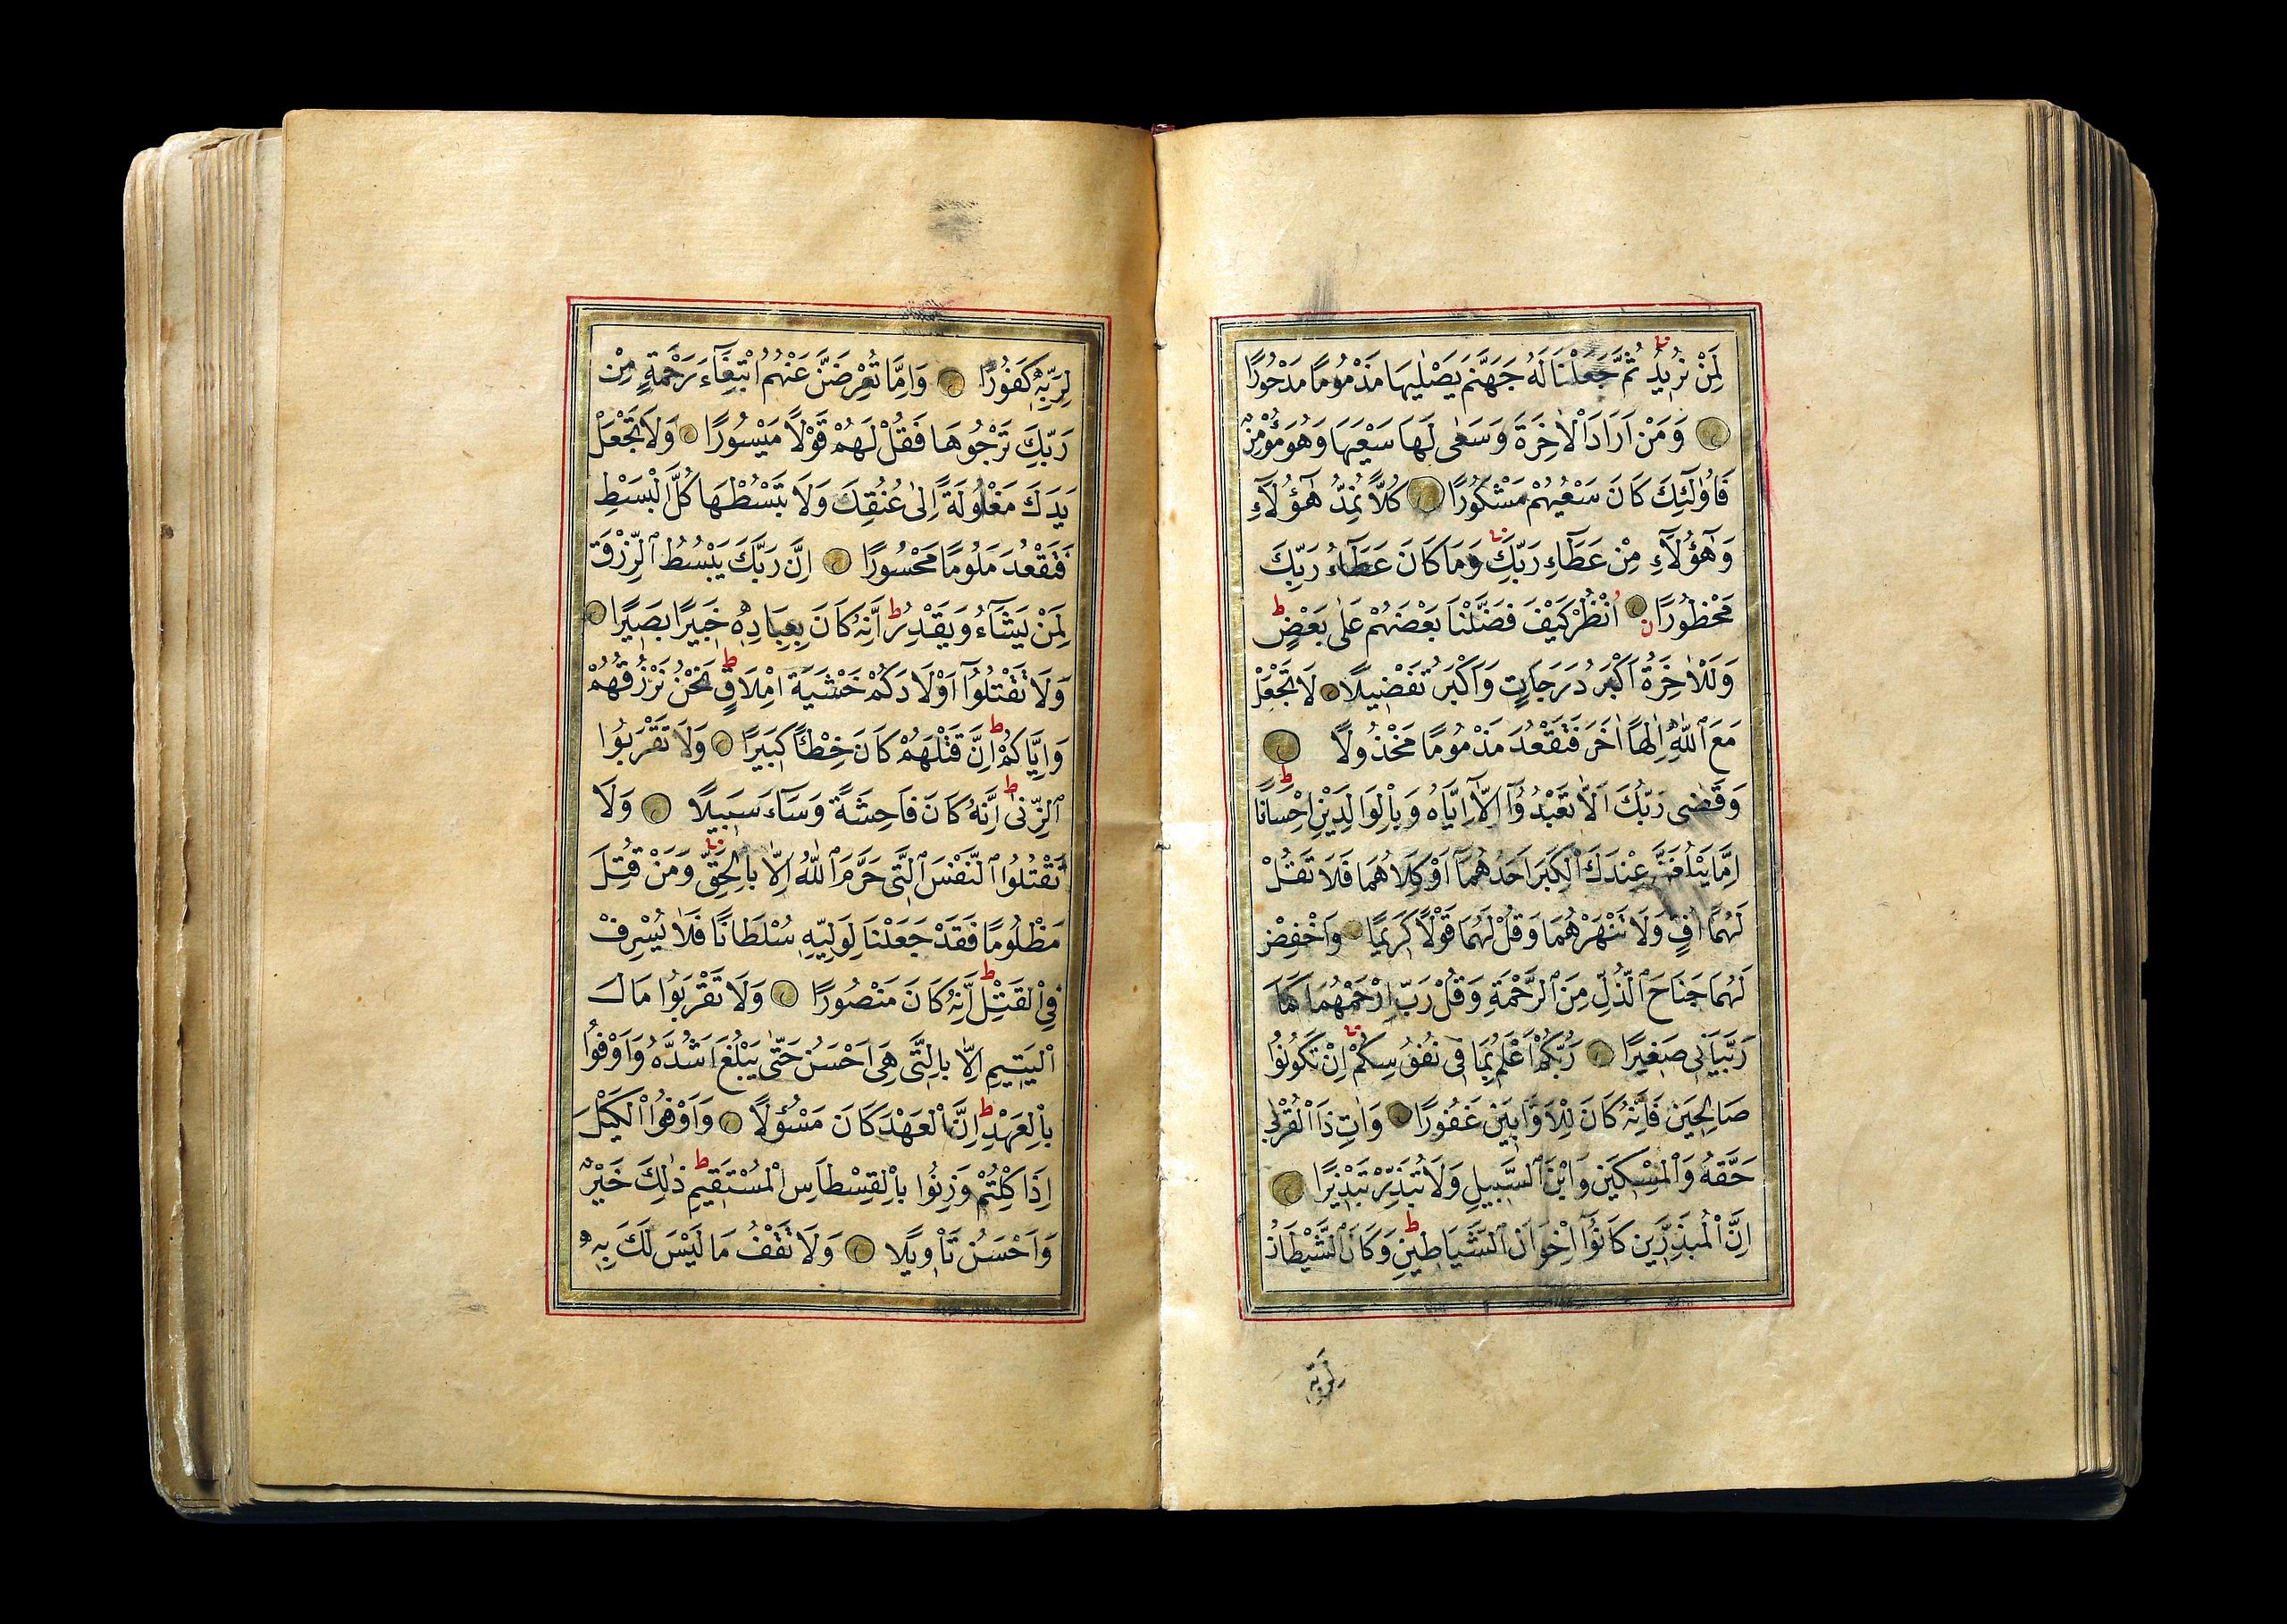 لِمَنْ نُرِيدُ ثُمَّ جَعَلْنَا لَهُ جَهَنَّمَ يَصْلٰيهَا مَذْمُومًا مَدْحُورًا
وَمَنْ اَرَادَ الْاٰخِرَةَ وَسَعٰى لَهَا سَعْيَهَا وَهُوَ مُؤْمِنٌ
فَاُولٰٓئِكَ كَانَ سَعْيُهُمْ مَشْكُورًا كُلًّا نُمِدُّ هٰٓؤُلَآءِ
وَهٰٓؤُلَآءِ مِنْ عَطَآءِ رَبِّكَ وَمَا كَانَ عَطَآءُ رَبِّكَ
مَحْظُورًا اُنْظُرْ كَيْفَ فَضَّلْنَا بَعْضَهُمْ عَلٰى بَعْضٍ
وَلَلْاٰخِرَةُ اَكْبَرُ دَرَجَاتٍ وَاَكْبَرُ تَفْضِيلًا لَا تَجْعَلْ
مَعَ اللّٰهِ اِلٰهًا اٰخَرَ فَتَقْعُدَ مَذْمُومًا مَخْذُولًا
وَقَضٰى رَبُّكَ اَلَّا تَعْبُدُوٓا اِلَّآ اِيَّاهُ وَبِالْوَالِدَيْنِ اِحْسَانًا
اِمَّا يَبْلُغَنَّ عِنْدَكَ الْكِبَرَ اَحَدُهُمَآ اَوْ كِلَاهُمَا فَلَا تَقُلْ
لَهُمَآ اُفٍّ وَلَا تَنْهَرْهُمَا وَقُلْ لَهُمَا قَوْلًا كَرِيمًا وَاخْفِضْ
لَهُمَا جَنَاحَ الذُّلِّ مِنَ الرَّحْمَةِ وَقُلْ رَبِّ ارْحَمْهُمَا كَمَا
رَبَّيَانِي صَغِيرًا رَبُّكُمْ اَعْلَمُ بِمَا فِي نُفُوسِكُمْ اِنْ تَكُونُوا
صَالِحِينَ فَاِنَّهُ كَانَ لِلْاَوَّابِينَ غَفُورًا وَاٰتِ ذَا الْقُرْبٰى
حَقَّهُ وَالْمِسْكِينَ وَابْنَ السَّبِيلِ وَلَا تُبَذِّرْ تَبْذِيرًا
اِنَّ الْمُبَذِّرِينَ كَانُوٓا اِخْوَانَ الشَّيَاطِينِ وَكَانَ الشَّيْطَانُ
لِرَبِّهِ
لِرَبِّهِ كَفُورًا وَاِمَّا تُعْرِضَنَّ عَنْهُمُ ابْتِغَآءَ رَحْمَةٍ مِنْ
رَبِّكَ تَرْجُوهَا فَقُلْ لَهُمْ قَوْلًا مَيْسُورًا وَلَا تَجْعَلْ
يَدَكَ مَغْلُولَةً اِلٰى عُنُقِكَ وَلَا تَبْسُطْهَا كُلَّ الْبَسْطِ
فَتَقْعُدَ مَلُومًا مَحْسُورًا اِنَّ رَبَّكَ يَبْسُطُ الرِّزْقَ
لِمَنْ يَشَآءُ وَيَقْدِرُ اِنَّهُ كَانَ بِعِبَادِهِ خَبِيرًا بَصِيرًا
وَلَا تَقْتُلُوٓا اَوْلَادَكُمْ خَشْيَةَ اِمْلَاقٍ نَحْنُ نَرْزُقُهُمْ
وَاِيَّاكُمْ اِنَّ قَتْلَهُمْ كَانَ خِطْـًٔا كَبِيرًا وَلَا تَقْرَبُوا
الزِّنٰى اِنَّهُ كَانَ فَاحِشَةً وَسَآءَ سَبِيلًا وَلَا
تَقْتُلُوا النَّفْسَ الَّتِي حَرَّمَ اللّٰهُ اِلَّا بِالْحَقِّ وَمَنْ قُتِلَ
مَظْلُومًا فَقَدْ جَعَلْنَا لِوَلِيِّهِ سُلْطَانًا فَلَا يُسْرِفْ
فِي الْقَتْلِ اِنَّهُ كَانَ مَنْصُورًا وَلَا تَقْرَبُوا مَالَ
الْيَتِيمِ اِلَّا بِالَّتِي هِيَ اَحْسَنُ حَتّٰى يَبْلُغَ اَشُدَّهُ وَاَوْفُوا
بِالْعَهْدِ اِنَّ الْعَهْدَ كَانَ مَسْؤُلًا وَاَوْفُوا الْكَيْلَ
اِذَا كِلْتُمْ وَزِنُوا بِالْقِسْطَاسِ الْمُسْتَقِيمِ ذٰلِكَ خَيْرٌ
وَاَحْسَنُ تَاْوِيلًا وَلَا تَقْفُ مَا لَيْسَ لَكَ بِهِ